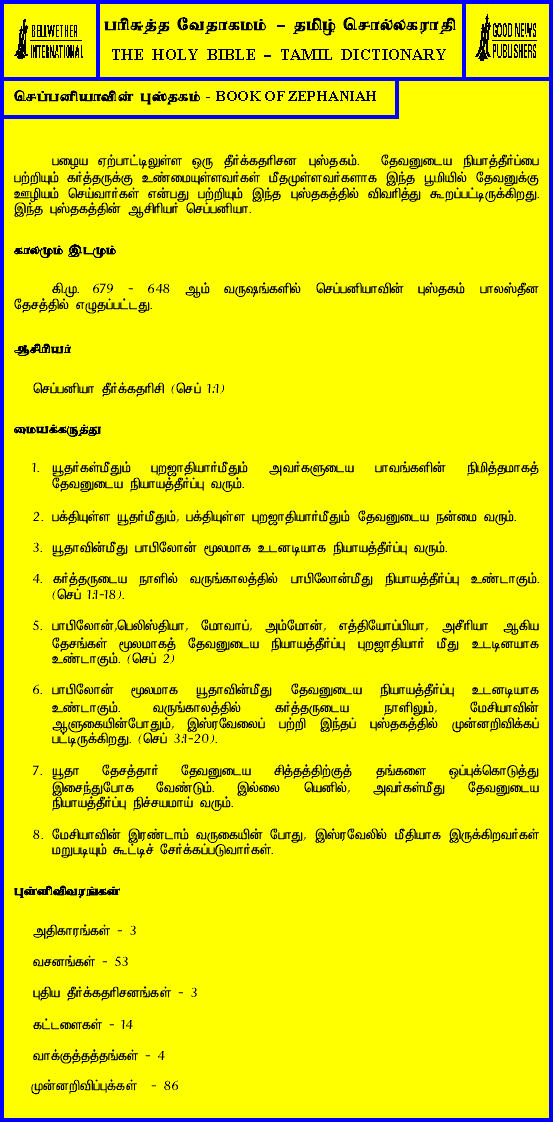 BELLWETHER
INTERNATIONAL
பரிசுத்த வேதாகமம் – தமிழ் சொல்லகராதி
THE HOLY BIBLE – TAMIL DICTIONARY
GOOD NEWS
PUBLISHERS
செப்பனியாவின் புஸ்தகம் - BOOK OF ZEPHANIAH
பழைய ஏற்பாட்டிலுள்ள ஒரு தீர்க்கதரிசன புஸ்தகம். தேவனுடைய நியாத்தீர்ப்பை
பற்றியும் கர்த்தருக்கு உண்மையுள்ளவர்கள் மீதமுள்ளவர்களாக இந்த பூமியில் தேவனுக்கு
ஊழியம் செய்வார்கள் என்பது பற்றியும் இந்த புஸ்தகத்தில் விவரித்து கூறப்பட்டிருக்கிறது.
இந்த புஸ்தகத்தின் ஆசிரியர் செப்பனியா.
காலமும் இடமும்
கி.மு. 679 - 648 ஆம் வருஷங்களில் செப்பனியாவின் புஸ்தகம் பாலஸ்தீன
தேசத்தில் எழுதப்பட்டது.
ஆசிரியர்
செப்பனியா தீர்க்கதரிசி (செப் 1:1)
மையக்கருத்து
1. யூதர்கள்மீதும் புறஜாதியார்மீதும் அவர்களுடைய பாவங்களின் நிமித்தமாகத்
தேவனுடைய நியாயத்தீர்ப்பு வரும்.
2. பக்தியுள்ள யூதர்மீதும், பக்தியுள்ள புறஜாதியார்மீதும் தேவனுடைய நன்மை வரும்.
3. யூதாவின்மீது பாபிலோன் மூலமாக உடனடியாக நியாயத்தீர்ப்பு வரும்.
4. கர்த்தருடைய நாளில் வருங்காலத்தில் பாபிலோன்மீது நியாயத்தீர்ப்பு உண்டாகும்.
(செப் 1:1-18).
5. பாபிலோன்,பெலிஸ்தியா, மோவாப், அம்மோன், எத்தியோப்பியா, அசீரியா ஆகிய
தேசங்கள் மூலமாகத் தேவனுடைய நியாயத்தீர்ப்பு புறஜாதியார் மீது உடடினயாக
உண்டாகும். (செப் 2)
6. பாபிலோன் மூலமாக யூதாவின்மீது தேவனுடைய நியாயத்தீர்ப்பு உடனடியாக
உண்டாகும். வருங்காலத்தில் கர்த்தருடைய நாளிலும், மேசியாவின்
ஆளுகையின்போதும், இஸ்ரவேலைப் பற்றி இந்தப் புஸ்தகத்தில் முன்னறிவிக்கப்
பட்டிருக்கிறது. (செப் 3:1-20).
7. யூதா தேசத்தார் தேவனுடைய சித்தத்திற்குத் தங்களை ஒப்புக்கொடுத்து
இசைந்துபோக வேண்டும். இல்லை யெனில், அவர்கள்மீது தேவனுடைய
நியாயத்தீர்ப்பு நிச்சயமாய் வரும்.
8. மேசியாவின் இரண்டாம் வருகையின் போது, இஸ்ரவேலில் மீதியாக இருக்கிறவர்கள்
மறுபடியும் கூட்டிச் சேர்க்கப்படுவார்கள்.
புள்ளிவிவரங்கள்
அதிகாரங்கள் - 3
வசனங்கள் - 53
புதிய தீர்க்கதரிசனங்கள் - 3
கட்டளைகள் - 14
வாக்குத்தத்தங்கள் - 4
முன்னறிவிப்புக்கள் - 86